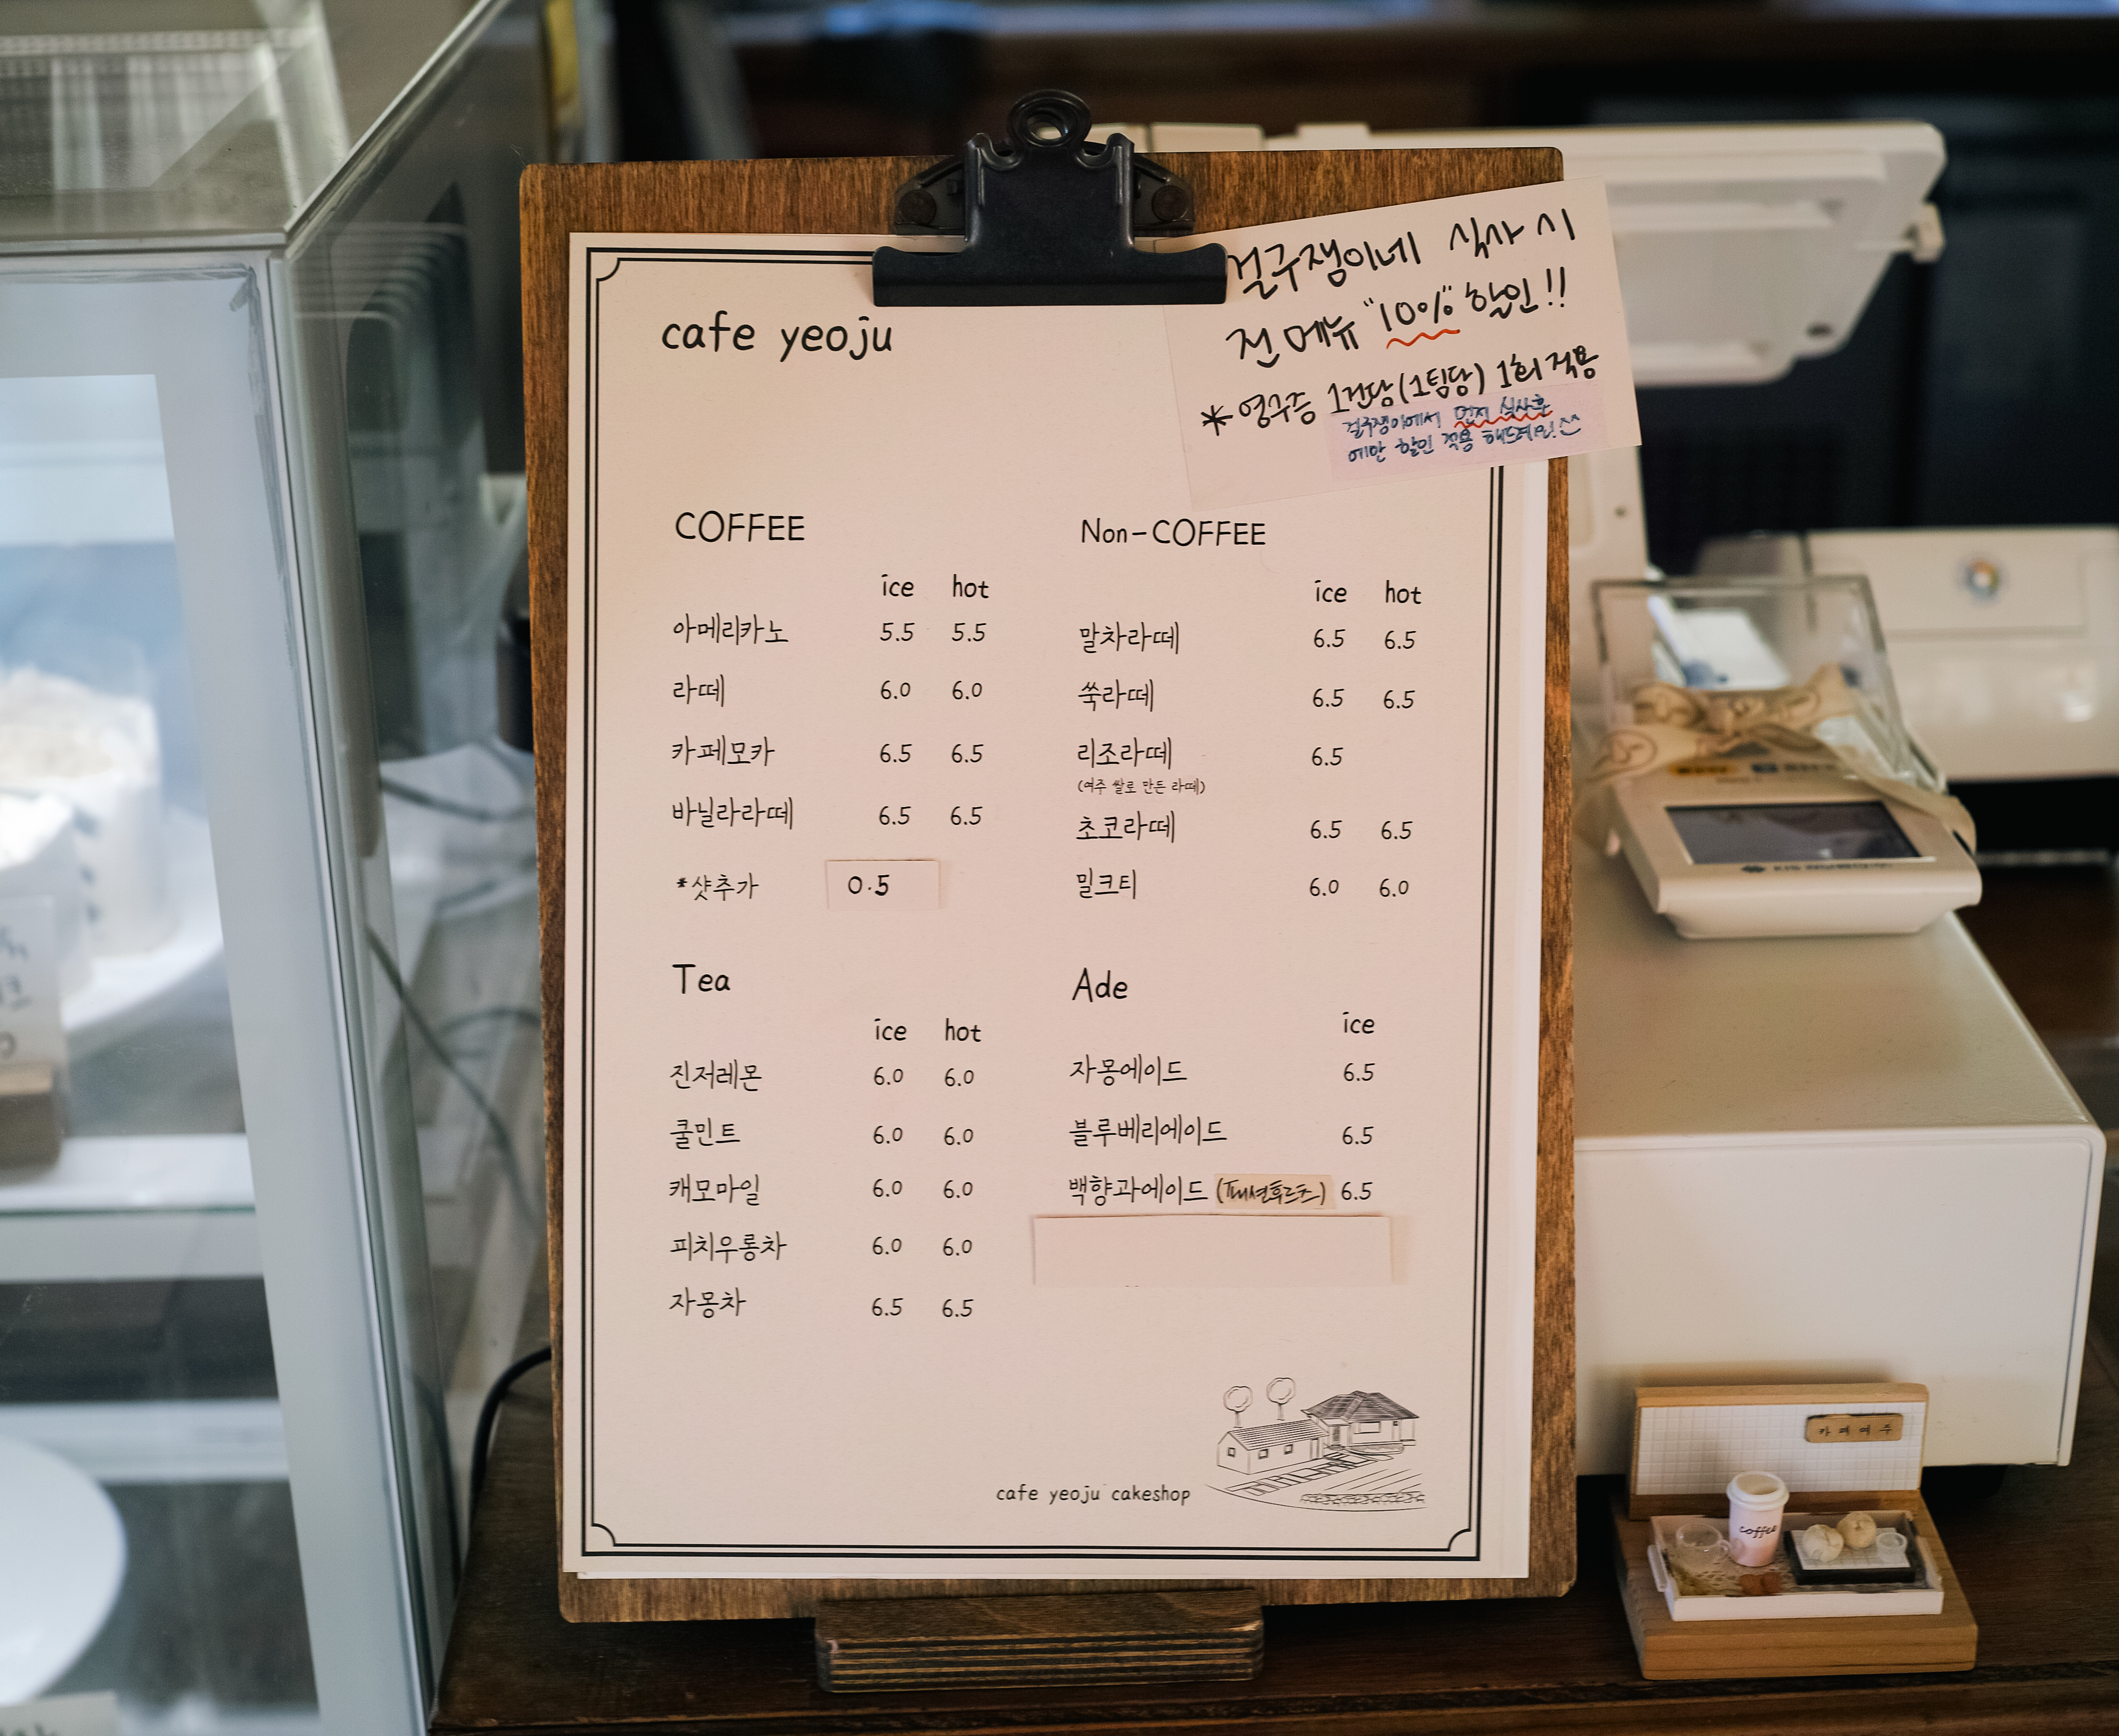 걸구쟁이네 식사 시
전메뉴 "10%" 할인!!
*영수증 1건당(1팀당) 1회 적용
걸구쟁이에서 먼저 식사후
에만 할인 적용 해드려요!
cafe yeoju
COFFEE
ice hot
아메리카노 5.5 5.5
라떼 6.0 6.0
카페모카 6.5 6.5
바닐라라떼 6.5 6.5
*샷추가 0.5
Non-COFFEE
ice hot
말차라떼 6.5 6.5
쑥라떼 6.5 6.5
리조라떼 6.5
(여주 쌀로 만든 라떼)
초코라떼 6.5 6.5
밀크티 6.0 6.0
Tea
ice hot
진저레몬 6.0 6.0
쿨민트 6.0 6.0
캐모마일 6.0 6.0
피치우롱차 6.0 6.0
자몽차 6.5 6.5
Ade
ice
자몽에이드 6.5
블루베리에이드 6.5
백향과에이드 (패션후르츠) 6.5
cafe yeoju cakeshop
카페여주
coffee